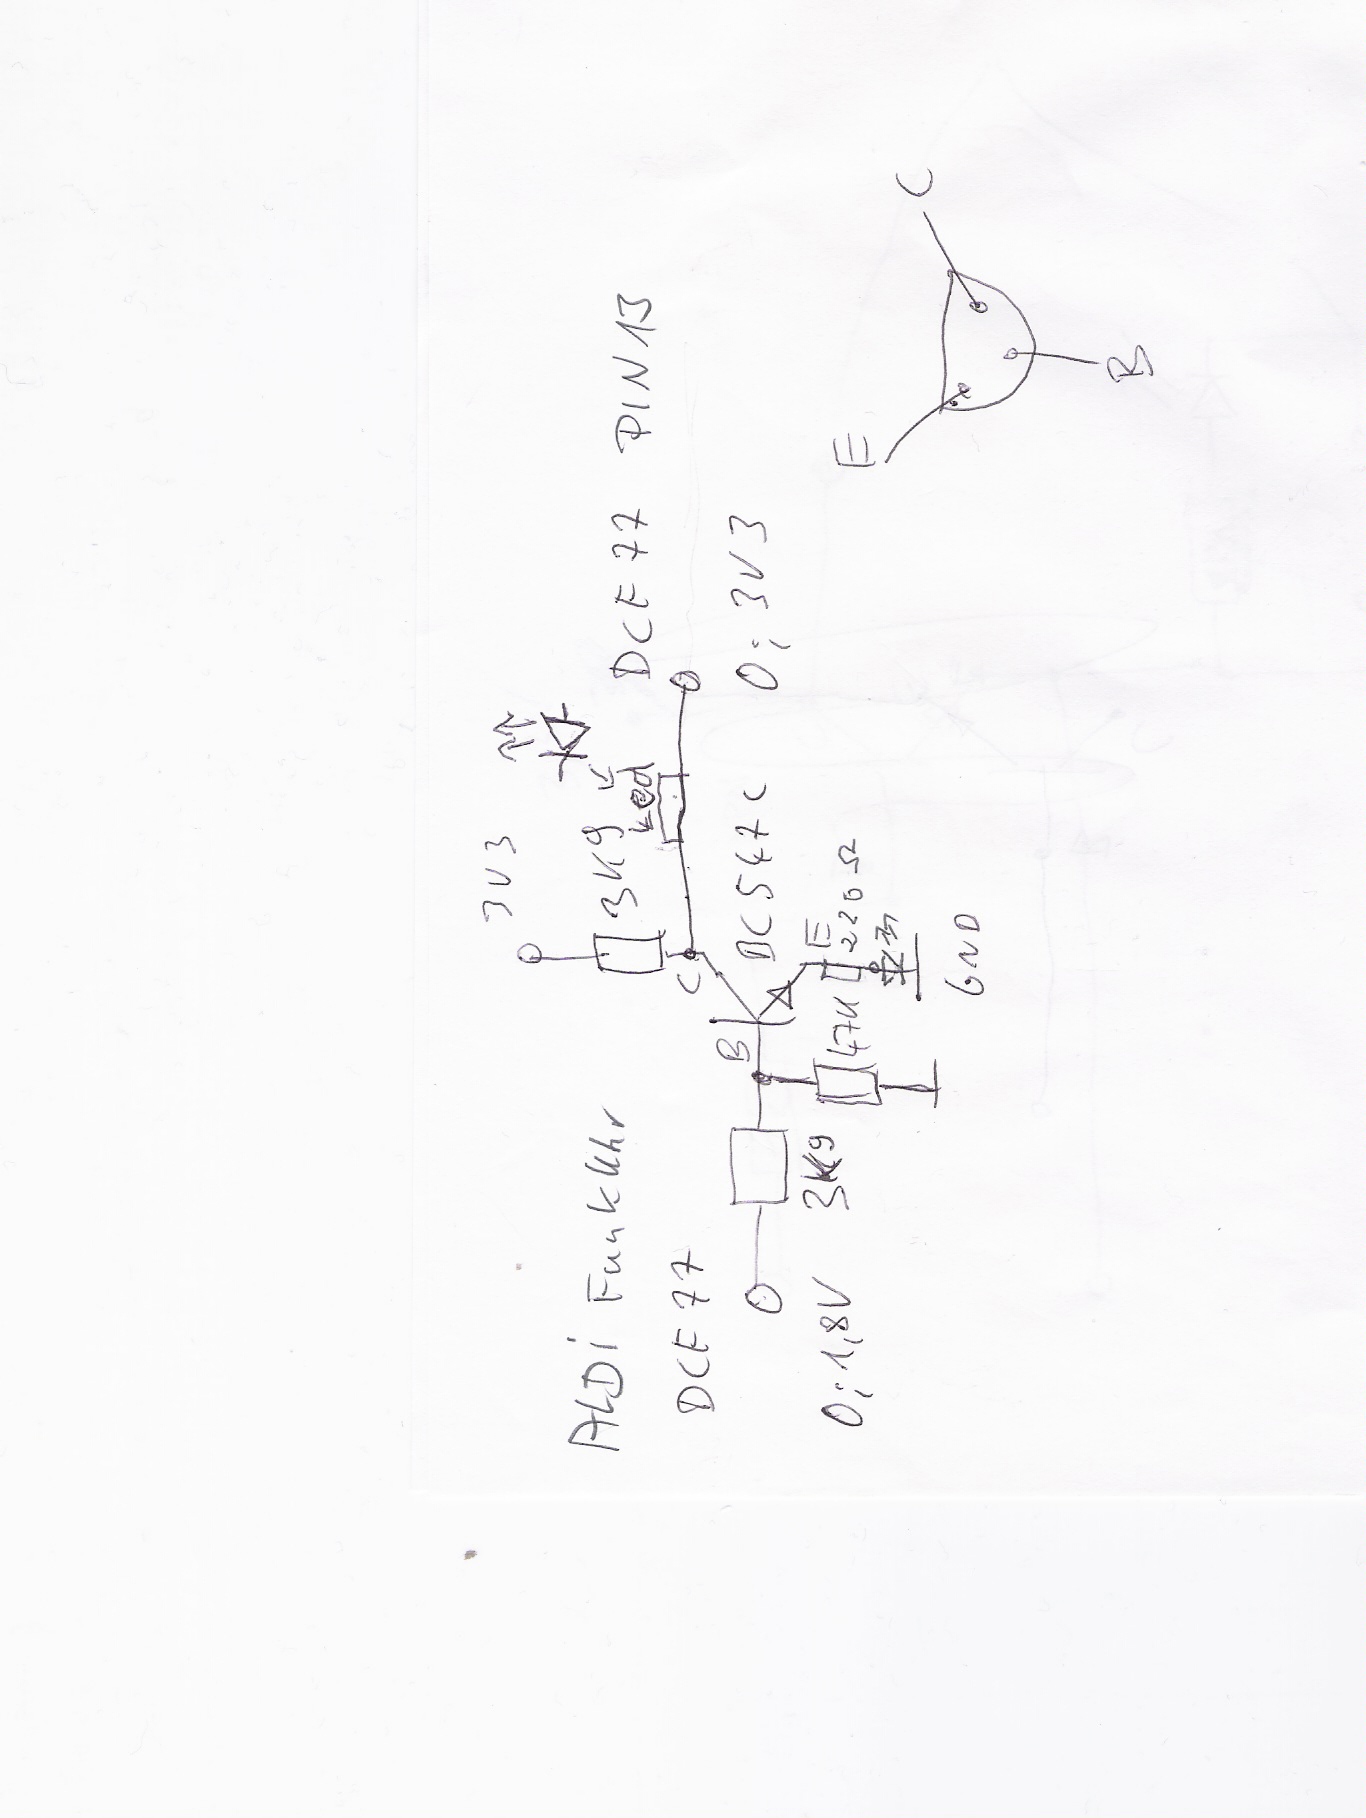 ALDi FunkUhr
DCF77
0; 1,8V
3K9
B
47K
3V3
3K9
C
BC547C
E
220Ω
GND
DCF77 PIN13
0; 3V3
E
B
C